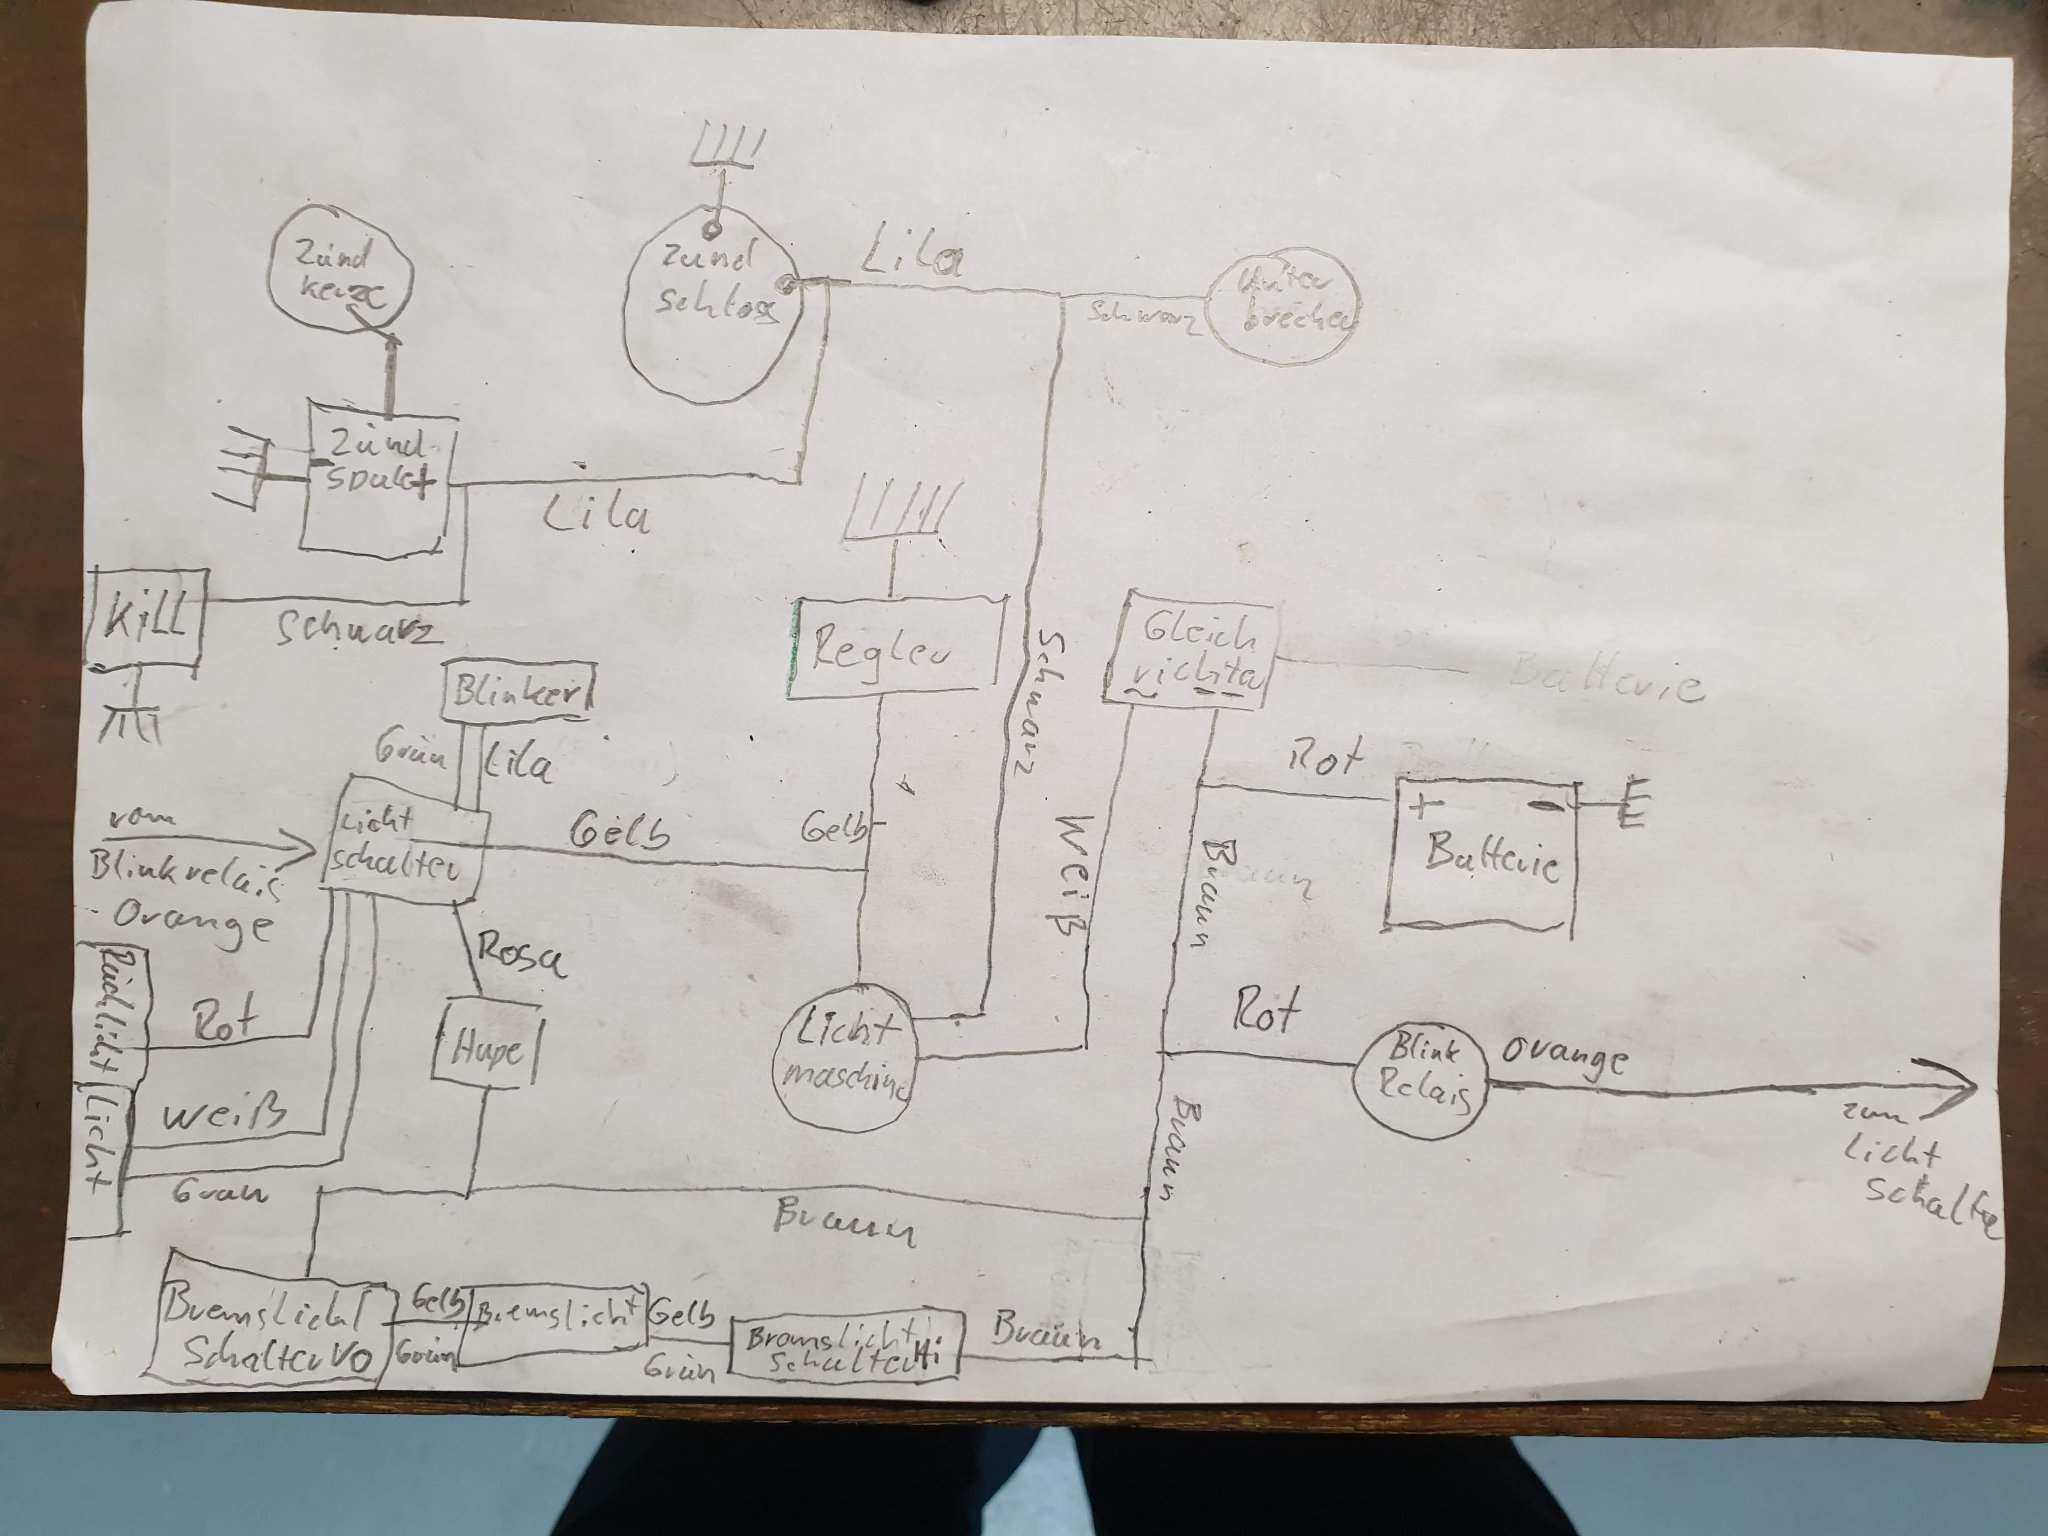 Zünd
kerze
Zünd
schloss
Lila
Schwarz
Unter
brecher
Zünd
Spule
+
-
Lila
Kill
Schwarz
Regler
Schwarz
Gleich
richter
Batterie
Blinker
Grün
Lila
Rot
+ -
Batterie
vom
Blinkrelais
Orange
Licht
schalter
Gelb
Gelb
Weiß
Braun
Rücklicht
Rot
Rosa
Hupe
Licht
maschine
Rot
Blink
Relais
Orange
zum
Licht
Schalter
Licht
Weiß
Grau
Braun
Braun
Bremslicht
Schalter Vo
Gelb
Grün
Bremslicht
Gelb
Grün
Bremslicht
Schalter Hi
Braun